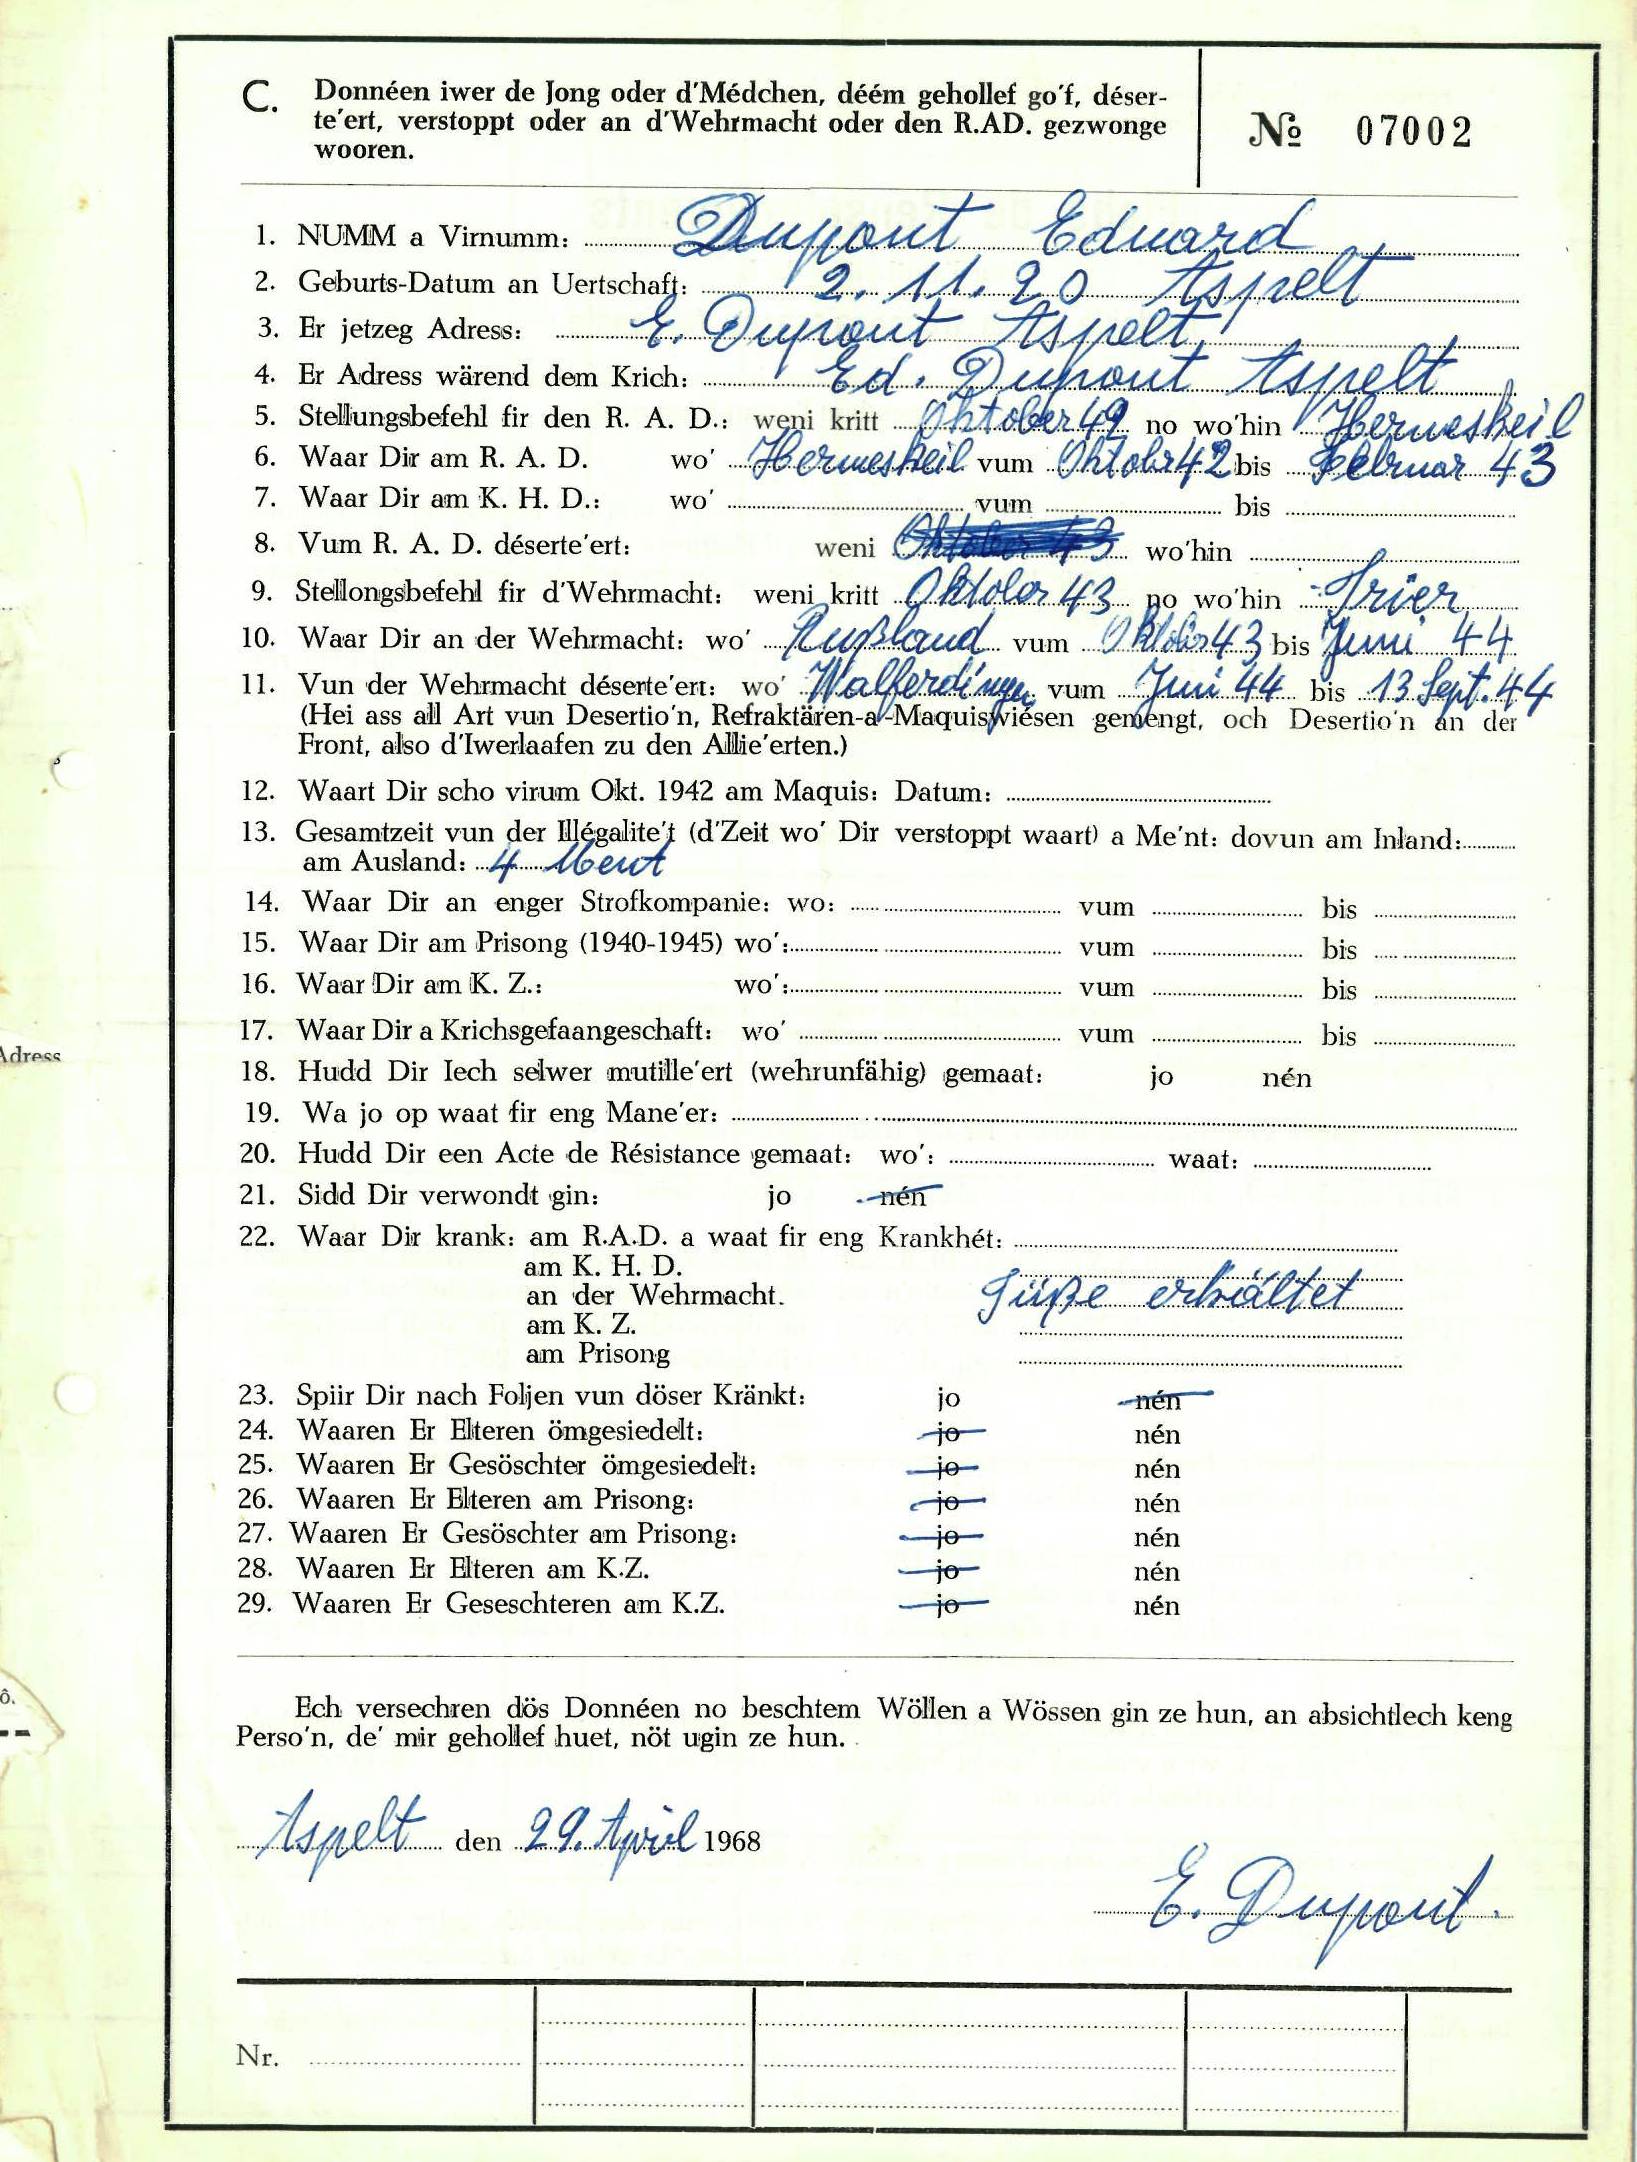 C. Donnéen iwer de Jong oder d'Médchen, déém gehollef go'f, déser-
te'ert, verstoppt oder an d'Wehrmacht oder den R.AD. gezwonge
wooren.
№ 07002
1. NUMM a Virnumm: Dupont Eduard
2. Geburts-Datum an Uertschaft: 2. 11. 20 Aspelt
3. Er jetzeg Adress: E. Dupont Aspelt
4. Er Adress wärend dem Krich: Ed. Dupont Aspelt
5. Stellungsbefehl fir den R. A. D.: weni kritt Oktober 42 no wo'hin Hermeskeil
6. Waar Dir am R. A. D. wo' Hermeskeil vum Oktobr 42 bis Februar 43
7. Waar Dir am K. H. D.: wo' vum bis
8. Vum R. A. D. déserte'ert: weni Oktober 43 wo'hin
9. Stellongsbefehl fir d'Wehrmacht: weni kritt Oktober 43 no wo'hin Trier
10. Waar Dir an der Wehrmacht: wo' Rußland vum Oktobr 43 bis Juni 44
11. Vun der Wehrmacht déserte'ert: wo' Walferdingen vum Juni 44 bis 13 Sept. 44
(Hei ass all Art vun Desertio'n, Refraktären-a-Maquiswiésen gemengt, och Desertio'n an der
Front, also d'Iwerlaafen zu den Allie'erten.)
12. Waart Dir scho virum Okt. 1942 am Maquis: Datum:
13. Gesamtzeit vun der Illégalite't (d'Zeit wo' Dir verstoppt waart) a Me'nt: dovun am Inland:
am Ausland: 4 Ment
14. Waar Dir an enger Strofkompanie: wo: vum bis
15. Waar Dir am Prisong (1940-1945) wo': vum bis
16. Waar Dir am K. Z.: wo': vum bis
17. Waar Dir a Krichsgefaangeschaft: wo' vum bis
18. Hudd Dir Iech selwer mutille'ert (wehrunfähig) gemaat: jo nén
19. Wa jo op waat fir eng Mane'er:
20. Hudd Dir een Acte de Résistance gemaat: wo': waat:
21. Sidd Dir verwondt gin: jo nén
22. Waar Dir krank: am R.A.D. a waat fir eng Krankhét:
am K. H. D.
an der Wehrmacht. Füße erkältet
am K. Z.
am Prisong
23. Spiir Dir nach Foljen vun döser Kränkt: jo nén
24. Waaren Er Elteren ömgesiedelt: jo nén
25. Waaren Er Gesöschter ömgesiedelt: jo nén
26. Waaren Er Elteren am Prisong: jo nén
27. Waaren Er Gesöschter am Prisong: jo nén
28. Waaren Er Elteren am K.Z. jo nén
29. Waaren Er Geseschteren am K.Z. jo nén
Ech versechren dös Donnéen no beschtem Wöllen a Wössen gin ze hun, an absichtlech keng
Perso'n, de' mir gehollef huet, nöt ugin ze hun.
Aspelt den 29. April 1968
E. Dupont.
Nr.
Adress
ô.